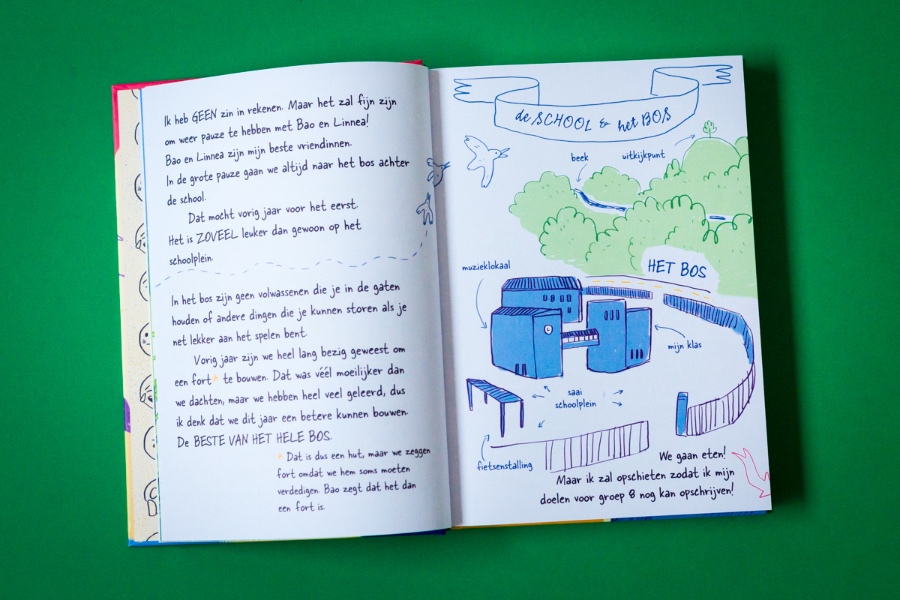 Ik heb GEEN zin in rekenen. Maar het zal fijn zijn
om weer pauze te hebben met Bao en Linnea!
Bao en Linnea zijn mijn beste vriendinnen.
In de grote pauze gaan we altijd naar het bos achter
de school.
Dat mocht vorig jaar voor het eerst.
Het is ZOVEEL leuker dan gewoon op het
schoolplein.
In het bos zijn geen volwassenen die je in de gaten
houden of andere dingen die je kunnen storen als je
net lekker aan het spelen bent.
Vorig jaar zijn we heel lang bezig geweest om
een fort* te bouwen. Dat was véél moeilijker dan
we dachten, maar we hebben heel veel geleerd, dus
ik denk dat we dit jaar een betere kunnen bouwen.
De BESTE VAN HET HELE BOS.
* Dat is dus een hut, maar we zeggen
fort omdat we hem soms moeten
verdedigen. Bao zegt dat het dan
een fort is.
de SCHOOL & het BOS
beek
uitkijkpunt
HET BOS
muzieklokaal
mijn klas
saai
schoolplein
fietsenstalling
We gaan eten!
Maar ik zal opschieten zodat ik mijn
doelen voor groep 8 nog kan opschrijven!